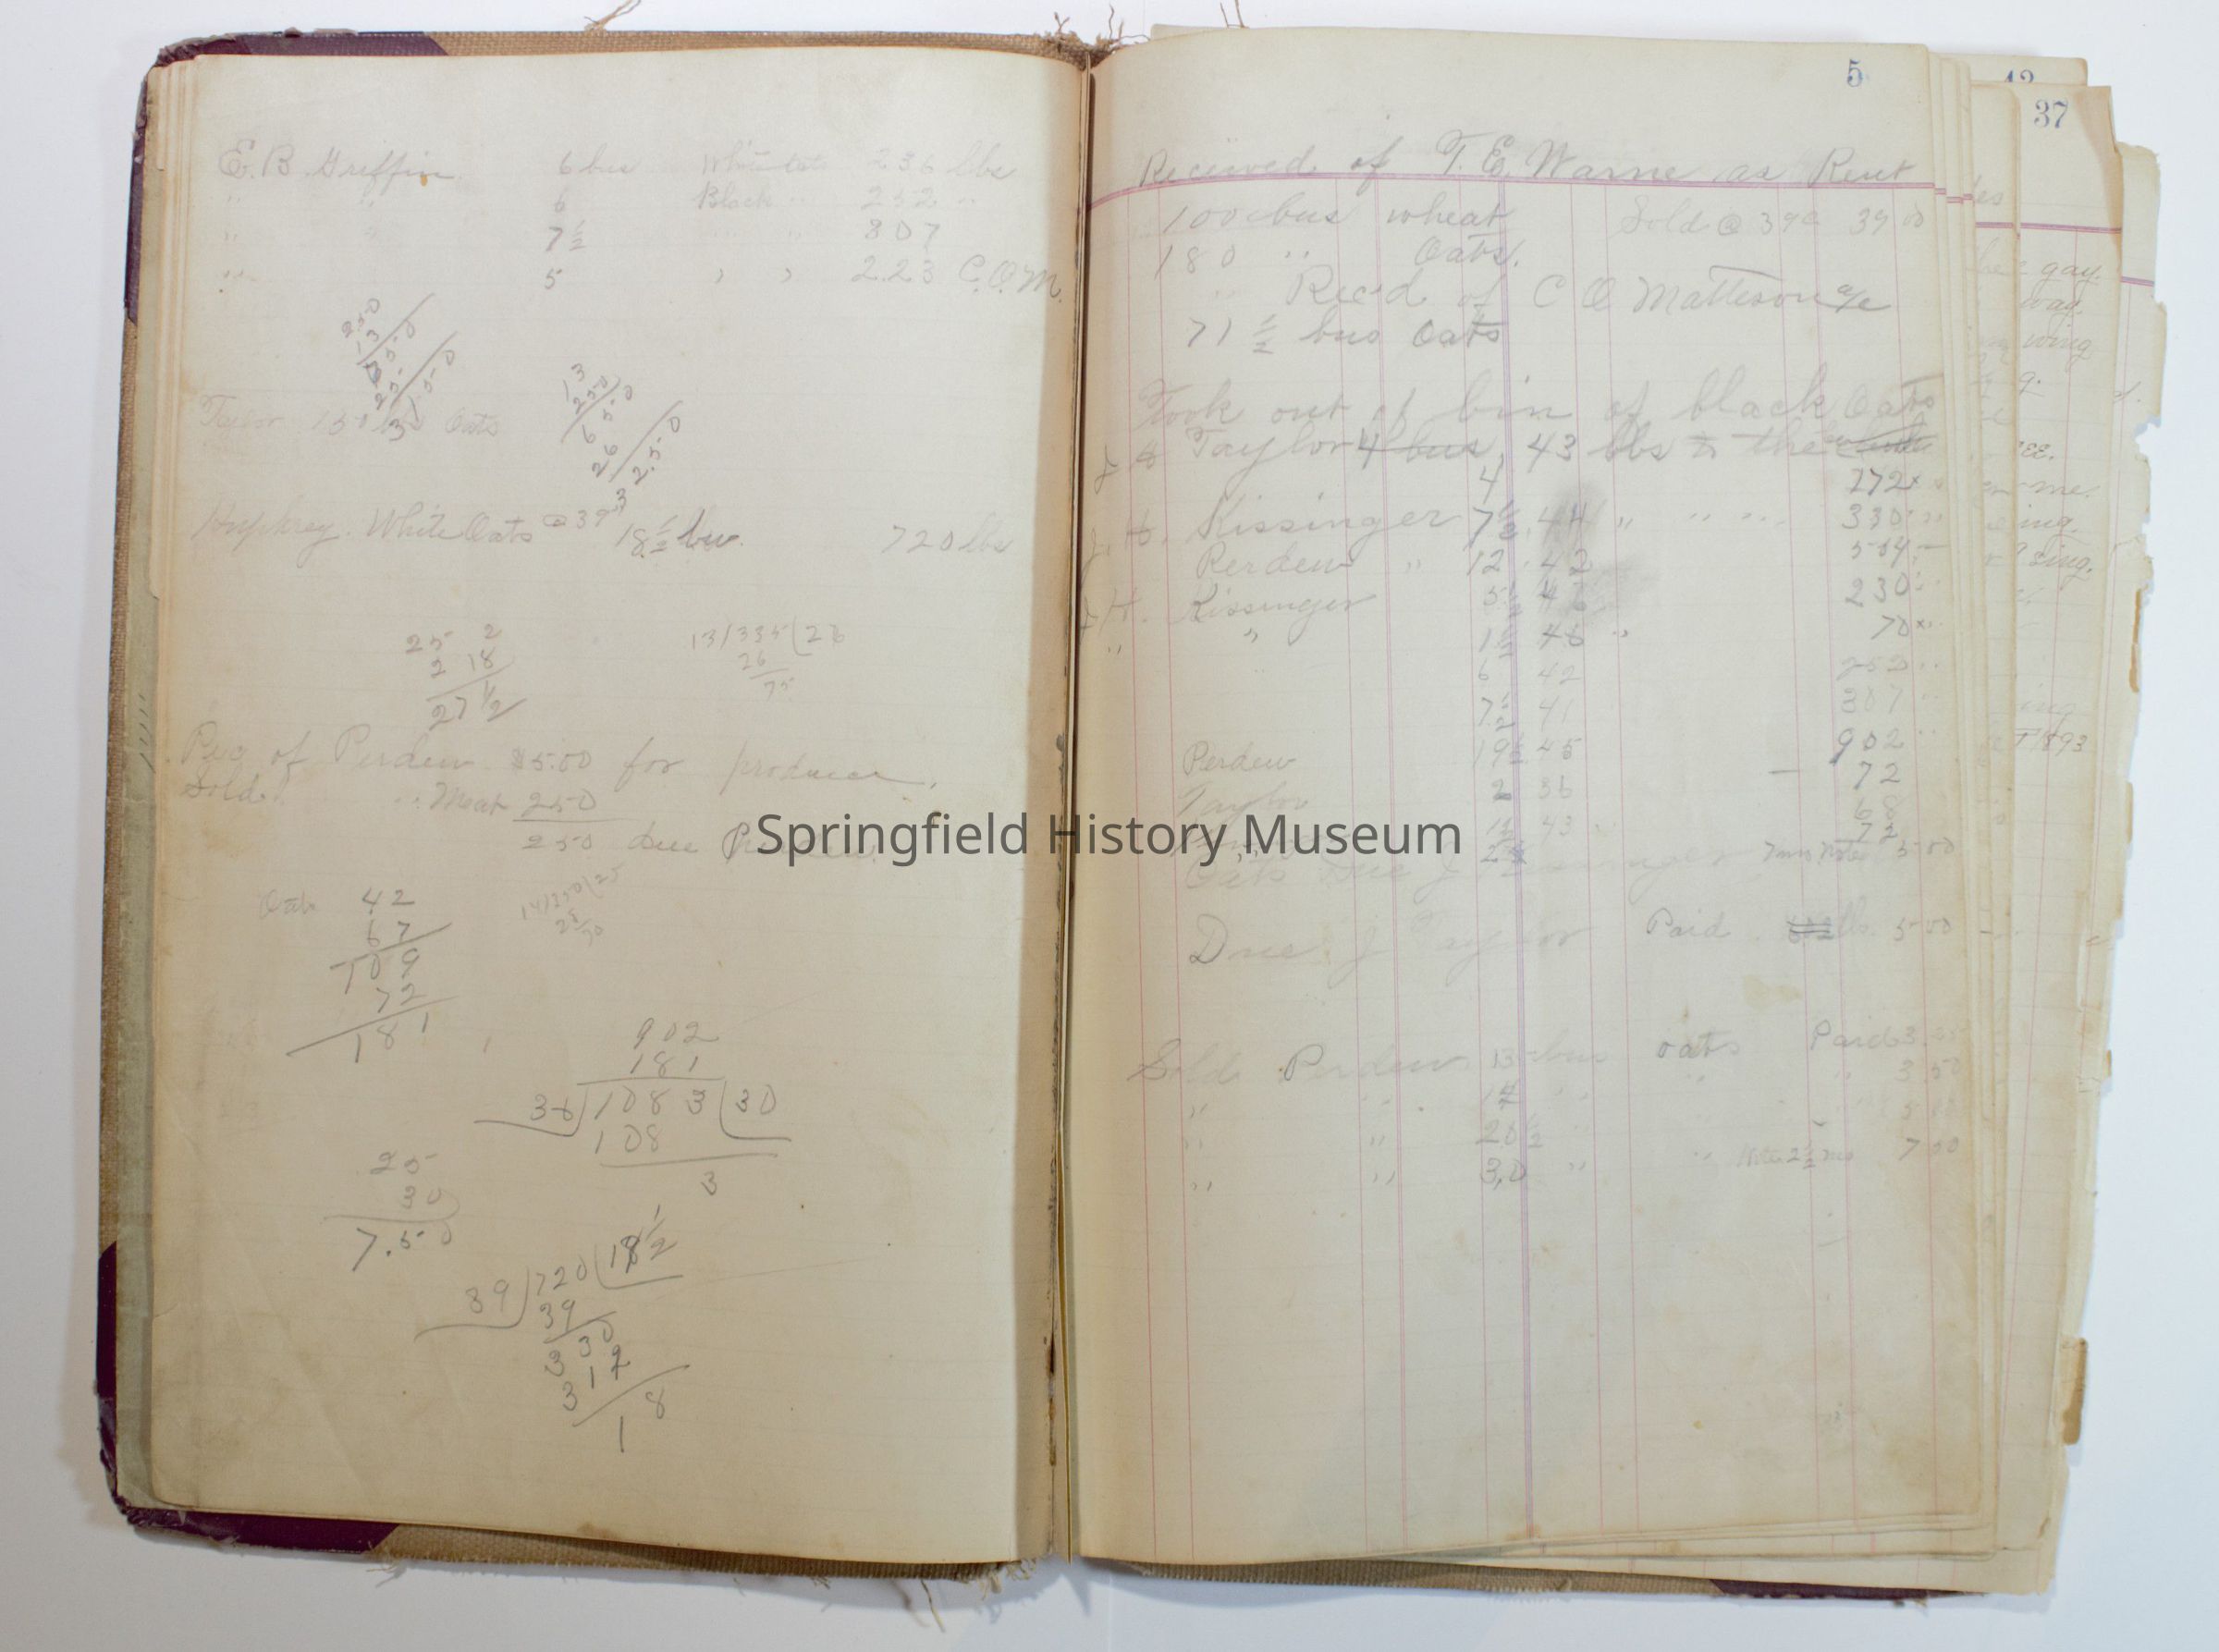 E. B. Griffin 6 bus White oats 236 lbs
" " 6 Black " 252 "
" " 7 1/2 " " 307
" 5 " " 2.23 C.O.M.
250
13
750
25
3250
13
250
650
26
3250
Taylor 150 Oats
Humphrey. White Oats @ 39 18 1/2 bu. 720 lbs
25 2
2 18
27 1/2
13/335(26
26
75
Rec of Perdew $5.00 for produce.
Sold " Meat 250
250 due
Oats 42
67
109
72
181
14/350(25
28
70
902
181
36)1083(30
108
3
25
30
7.50
39)720(18 1/2
39
330
312
18
5
Received of T. E. Warne as Rent
100 bus wheat Sold @ 39c 39 00
180 " Oats.
Rec'd of C O Matteson a/c
71 1/2 bus Oats
Took out of bin of black Oats
Taylor 4 bus 43 lbs to the
4 172
Kissinger 7 1/2 44 " " " 330 "
Perdew " 12 42 504
Kissinger 5 46 230 "
" 1 1/2 46 " 70
6 42 252 "
7 1/2 41 307 "
Perdew 19 1/2 45 902 "
Taylor 2 36 72
1 1/2 43 68
2 72
Oats Due J Kissinger 5 00
Due J Taylor Paid 5 00
Sold Perdew 13 bus oats Paid 3.25
" " 14 " " " 3 50
" " 20 1/2
" " 30 " " Note 2 1/2 mo 7 50
42
37
gay.
way.
wing
g.
ee.
me.
ing.
sing.
ing
1893
Springfield History Museum